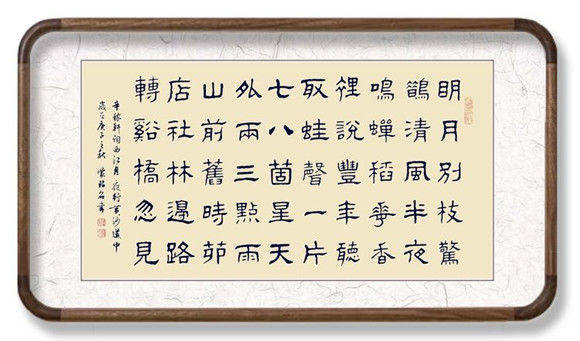 明月別枝驚
鵲清風半夜
鳴蟬稻華香
裡說豐年聽
取蛙聲一片
七八箇星天
外兩三點雨
山前舊時茆
店社林邊路
轉谿橋忽見
辛稼軒詞西江月夜行黃沙道中
歲在庚子之秋